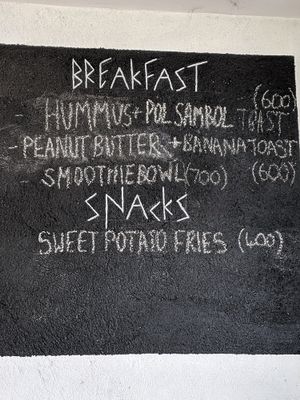 BREAKFAST
- HUMMUS + POL SAMBOL TOAST (600)
- PEANUT BUTTER + BANANA TOAST (600)
- SMOOTHIE BOWL (700)
SNACKS
SWEET POTATO FRIES (400)